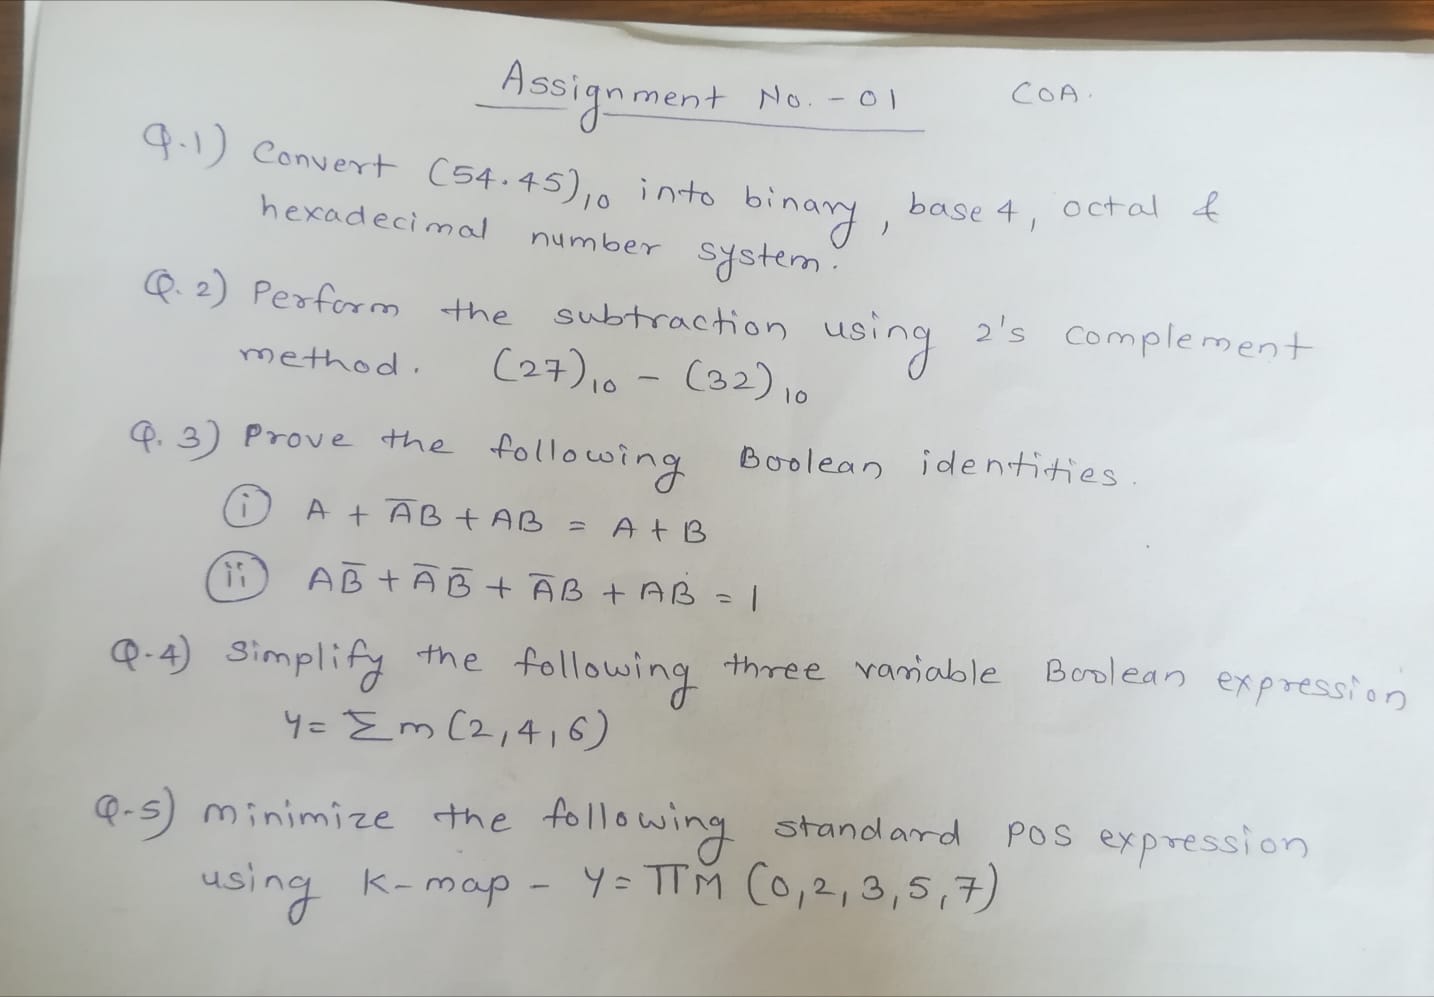 Assignment No. - 01 COA.
Q.1) Convert (54.45)₁₀ into binary, base 4, octal &
hexadecimal number system.
Q.2) Perform the subtraction using 2's complement
method. (27)₁₀ - (32)₁₀
Q.3) Prove the following Boolean identities.
(i) A + A̅B + AB = A + B
(ii) AB̅ + A̅B̅ + A̅B + AB = 1
Q.4) Simplify the following three variable Boolean expression
Y = Σm(2,4,6)
Q.5) minimize the following standard POS expression
using K-map - Y = ΠM (0,2,3,5,7)